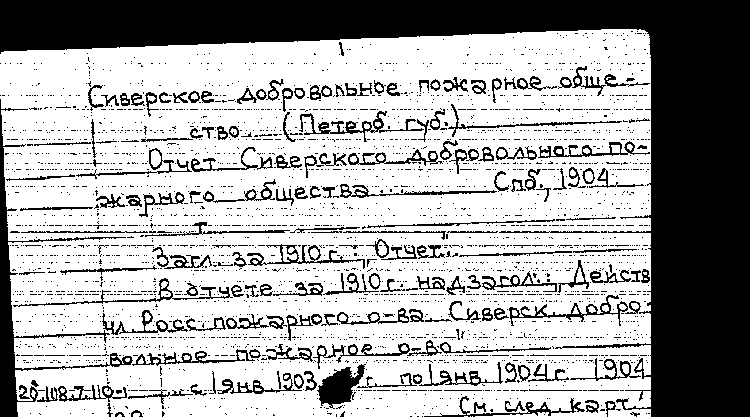 Сиверское добровольное пожарное обще-
ство (Петерб. губ.).
Отчет Сиверского добровольного по-
жарного общества... Спб., 1904.
т.
Загл. за 1910 г.: „Отчет".
В отчете за 1910 г. надзагол.: „Действ
чл. Росс. пожарного о-ва. Сиверск. добро-
вольное пожарное о-во".
... с 1 янв. 1903 г. по 1 янв. 1904 г. 1904
См. след. карт.